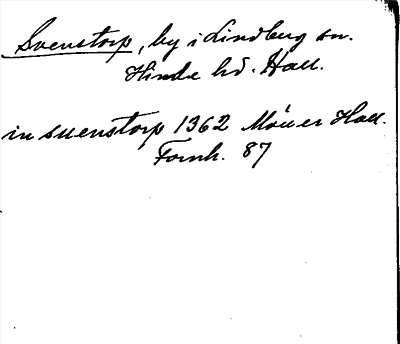 Svenstorp, by i Lindberg sn.
Himle hd. Hall.
in suenstorp 1362 Möller Hall.
Fornh. 87